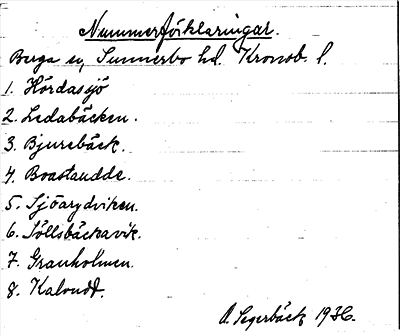 Nummerförklaringar.
Berga sn, Sunnerbo hd. Kronob. l.
1. Hördasjö
2. Ledabäcken.
3. Bjurebäck.
4. Boastaudde.
5. Sjöarydviken.
6. Söllsbäckavik.
7. Granholmen.
8. Kalvudd.
A. Segerbäck 1936.